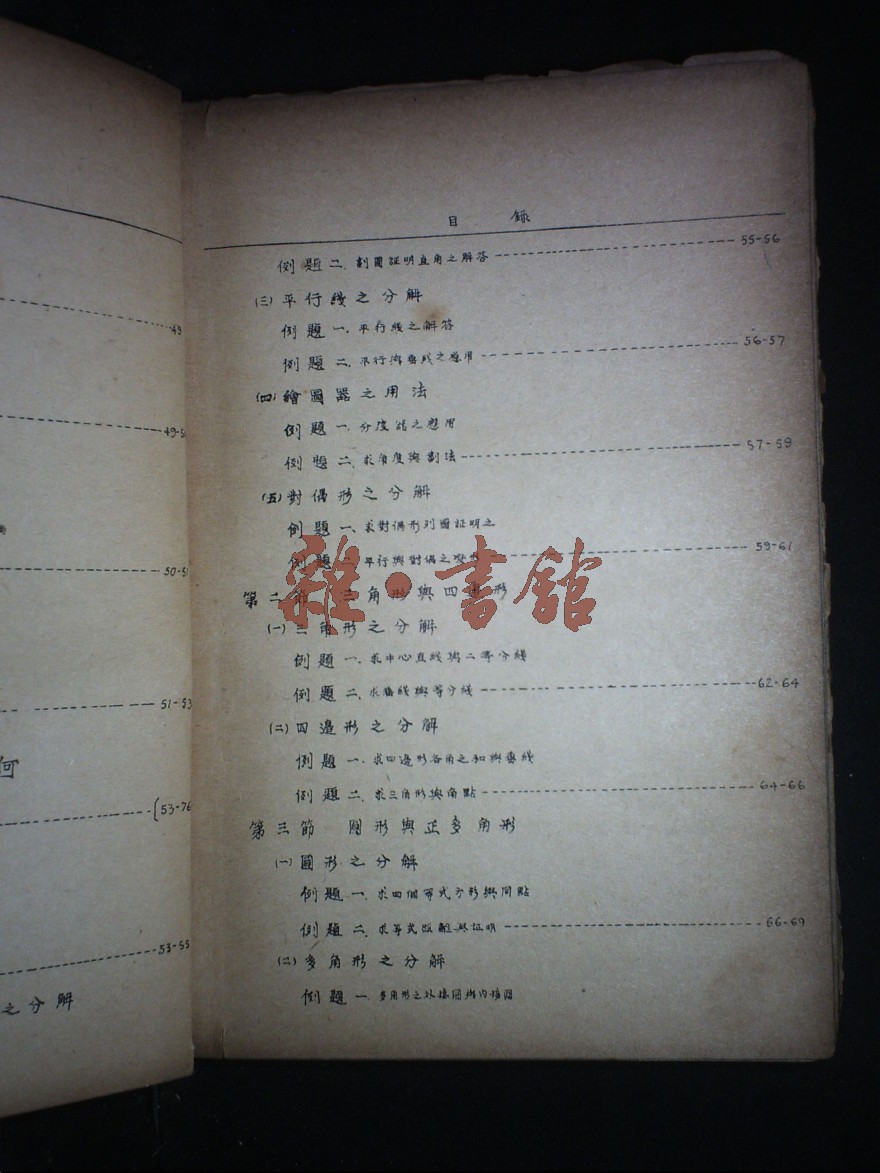 49
49-5
50-5
51-53
何
53-76
53-55
之分解
目 錄
例題二. 劃圖証明直角之解答 55-56
(三)平行綫之分解
例題一. 平行綫之解答
例題二. 平行與垂綫之應用 56-57
(四)繪圖器之用法
例題一. 分度器之應用
例題二. 求角度與劃法 57-59
(五)對偶形之分解
例題一. 求對偶形列圖証明之
例題 平行與對偶之 59-61
第二節 三角形與四邊形
(一)三角形之分解
例題一. 求中心直綫與二等分綫
例題二. 求垂綫與等分綫 62-64
(二)四邊形之分解
例題一. 求四邊形各角之和與垂綫
例題二. 求三角形與角點 64-66
第三節 圓形與正多角形
(一)圓形之分解
例題一. 求四個等式方形與同點
例題二. 求等式 與証明 66-69
(二)多角形之分解
例題一. 多角形之外接圓與內接圓
雜·書館